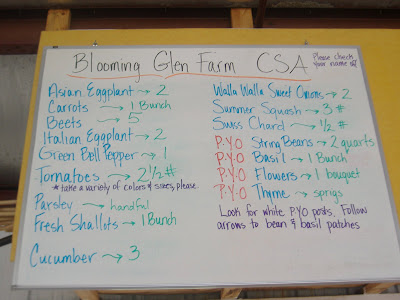 Blooming Glen Farm CSA
Please check your name off
Asian Eggplant → 2
Carrots → 1 Bunch
Beets → 5
Italian Eggplant → 2
Green Bell Pepper → 1
Tomatoes → 2 1/2 #
* take a variety of colors & sizes, please.
Parsley → handful
Fresh Shallots → 1 Bunch
Cucumber → 3
Walla Walla Sweet Onions → 2
Summer Squash → 3 #
Swiss Chard → 1/2 #
P.Y.O String Beans → 2 quarts
P.Y.O Basil → 1 Bunch
P.Y.O Flowers → 1 bouquet
P.Y.O Thyme → sprigs
Look for white P.Y.O posts. Follow
arrows to bean & basil patches